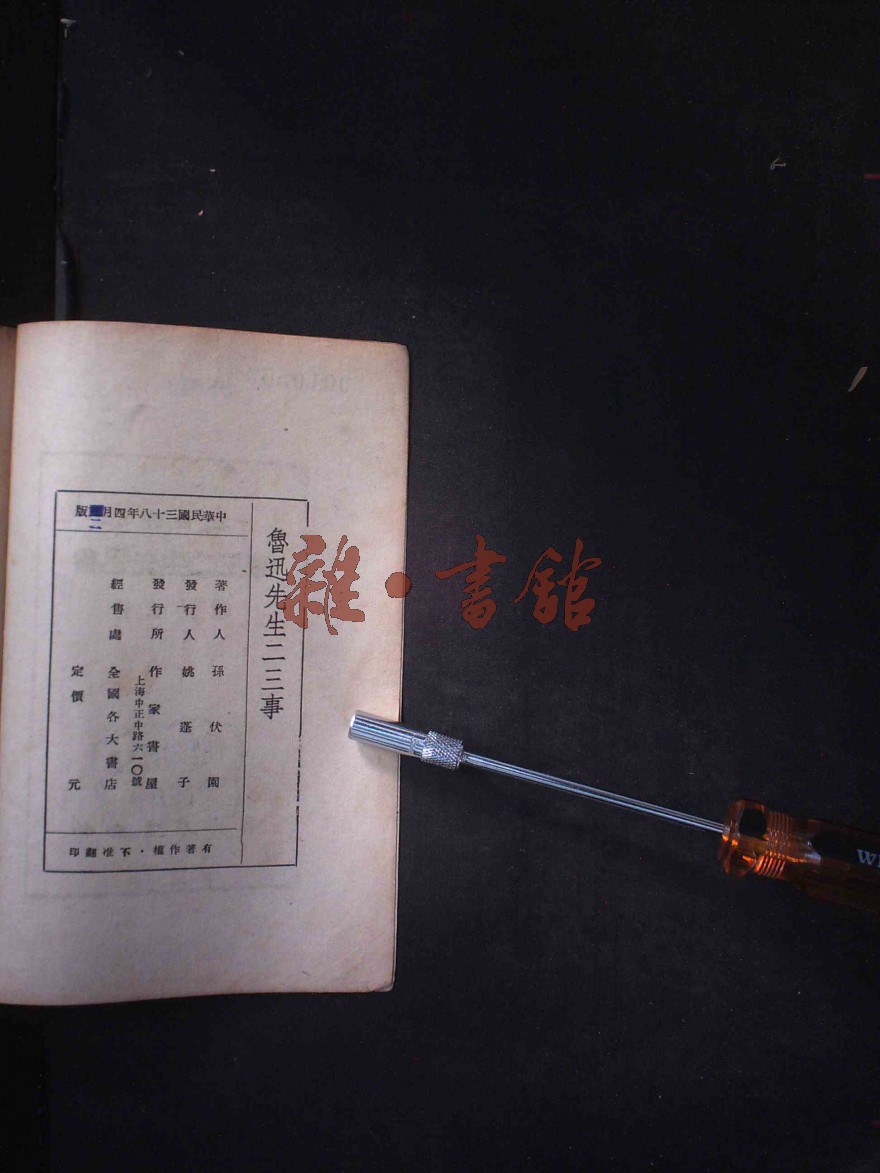 魯迅先生二三事
中華民國三十八年四月二版
著作人 孫伏園
發行人 姚蓬子
發行所 作家書屋
上海中正中路六一〇號
經售處 全國各大書店
定價 元
有著作權·不准翻印
雜·書館